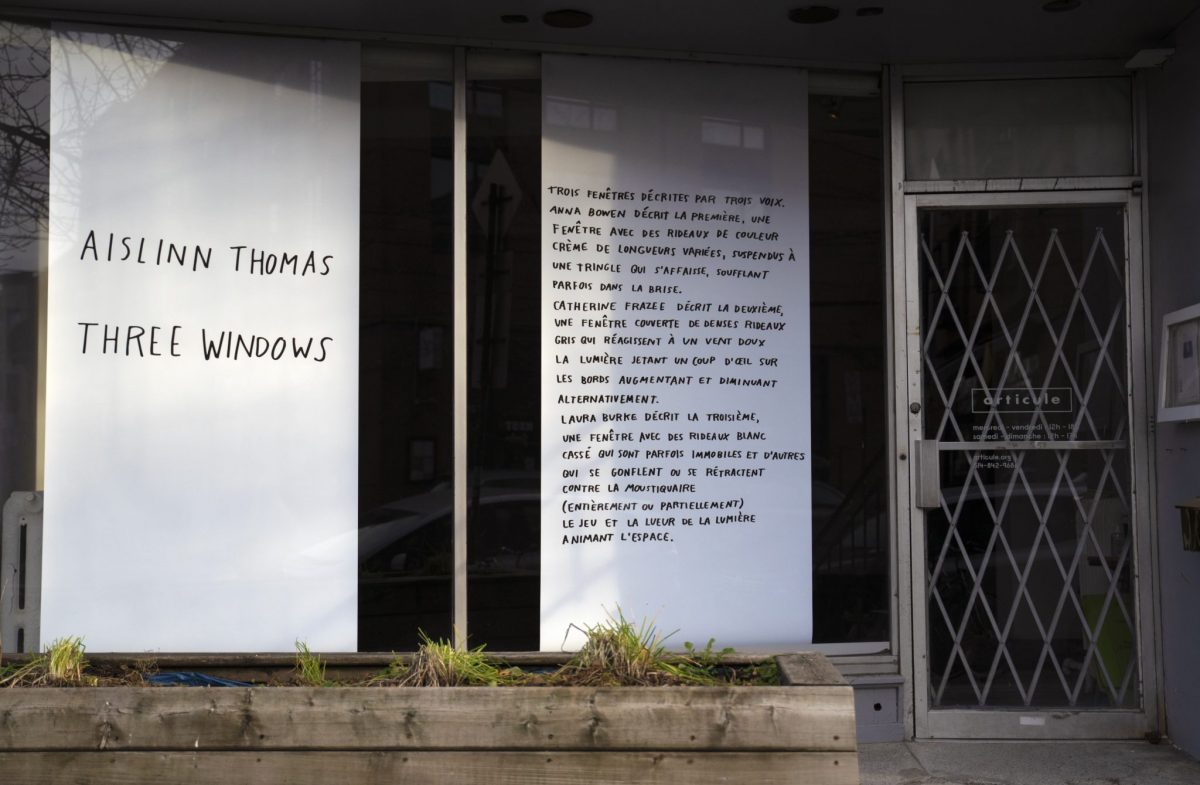 AISLINN THOMAS
THREE WINDOWS
TROIS FENÊTRES DÉCRITES PAR TROIS VOIX.
ANNA BOWEN DÉCRIT LA PREMIÈRE, UNE
FENÊTRE AVEC DES RIDEAUX DE COULEUR
CRÈME DE LONGUEURS VARIÉES, SUSPENDUS À
UNE TRINGLE QUI S'AFFAISSE, SOUFFLANT
PARFOIS DANS LA BRISE.
CATHERINE FRAZEE DÉCRIT LA DEUXIÈME,
UNE FENÊTRE COUVERTE DE DENSES RIDEAUX
GRIS QUI RÉAGISSENT À UN VENT DOUX
LA LUMIÈRE JETANT UN COUP D'ŒIL SUR
LES BORDS AUGMENTANT ET DIMINUANT
ALTERNATIVEMENT.
LAURA BURKE DÉCRIT LA TROISIÈME,
UNE FENÊTRE AVEC DES RIDEAUX BLANC
CASSÉ QUI SONT PARFOIS IMMOBILES ET D'AUTRES
QUI SE GONFLENT OU SE RÉTRACTENT
CONTRE LA MOUSTIQUAIRE
(ENTIÈREMENT OU PARTIELLEMENT)
LE JEU ET LA LUEUR DE LA LUMIÈRE
ANIMANT L'ESPACE.
articule
mercredi - vendredi : 12h - 18
samedi - dimanche : 12h - 17h
articule.org